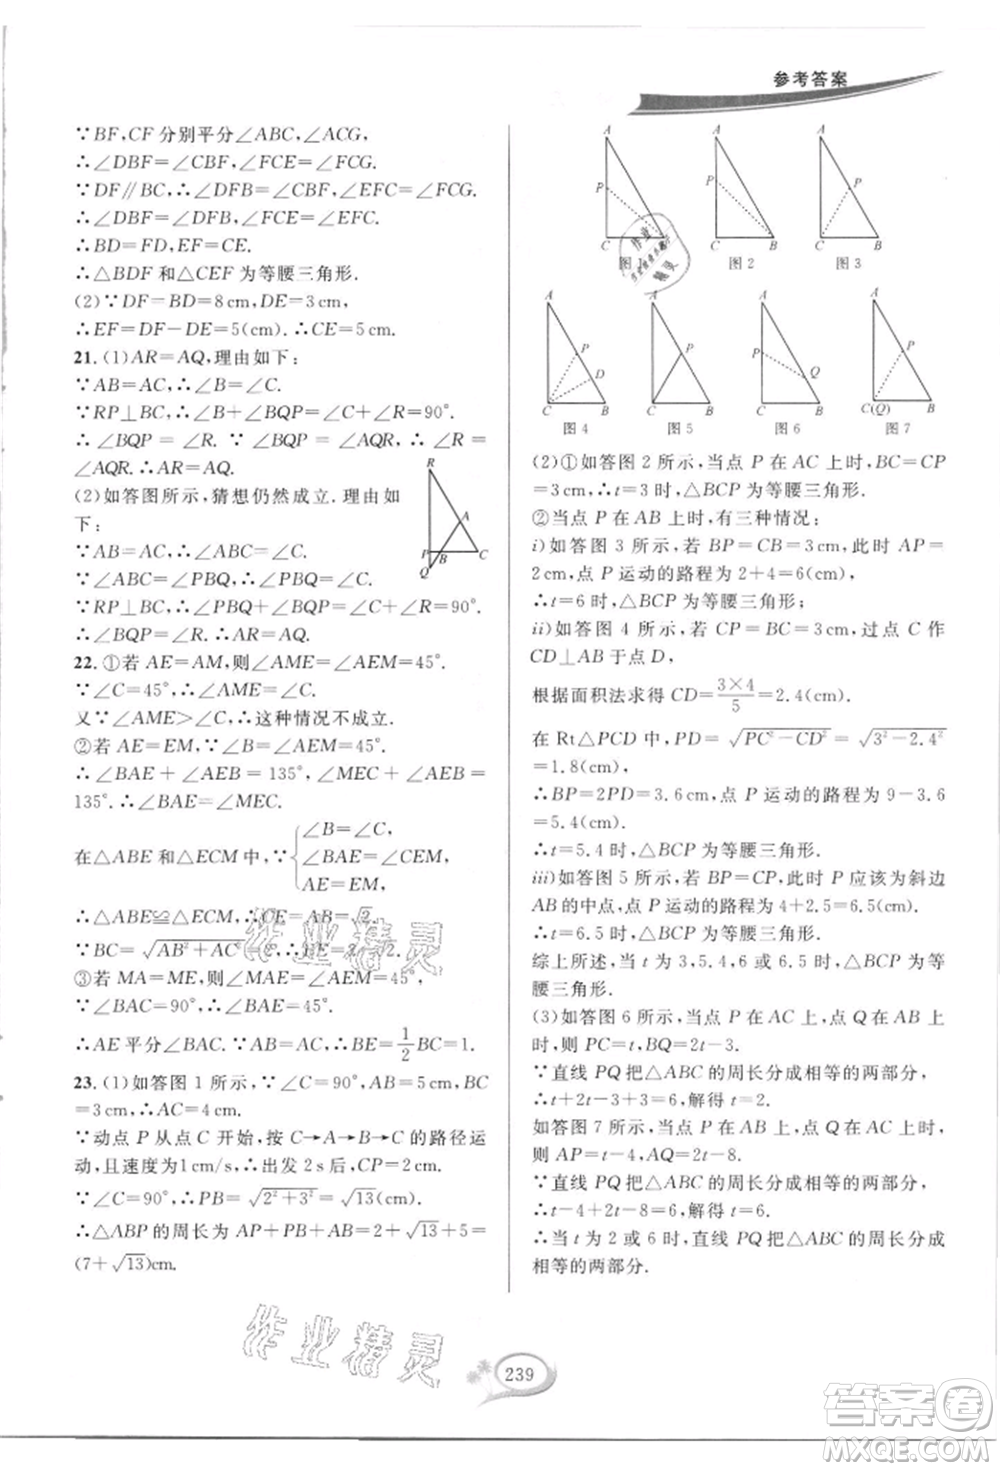 参考答案
∵BF,CF 分别平分∠ABC,∠ACG,
∴∠DBF=∠CBF,∠FCE=∠FCG.
∵DF∥BC,∴∠DFB=∠CBF,∠EFC=∠FCG.
∴∠DBF=∠DFB,∠FCE=∠EFC.
∴BD=FD,EF=CE.
∴△BDF 和△CEF 为等腰三角形.
(2)∵DF=BD=8cm,DE=3cm,
∴EF=DF-DE=5(cm).∴CE=5cm.
21.(1)AR=AQ,理由如下:
∵AB=AC,∴∠B=∠C.
∵RP⊥BC,∴∠B+∠BQP=∠C+∠R=90°.
∴∠BQP=∠R.∵∠BQP=∠AQR,∴∠R=
∠AQR.∴AR=AQ.
(2)如答图所示,猜想仍然成立.理由如
下:
∵AB=AC,∴∠ABC=∠C.
∵∠ABC=∠PBQ,∴∠PBQ=∠C.
∵RP⊥BC,∴∠PBQ+∠BQP=∠C+∠R=90°.
∴∠BQP=∠R.∴AR=AQ.
R
A
P
B
C
Q
22.①若 AE=AM,则∠AME=∠AEM=45°.
∵∠C=45°,∴∠AME=∠C.
又∵∠AME>∠C,∴这种情况不成立.
②若 AE=EM,∵∠B=∠AEM=45°.
∴∠BAE+∠AEB=135°,∠MEC+∠AEB=
135°.∴∠BAE=∠MEC.
在△ABE 和△ECM 中,∵{∠B=∠C,
∠BAE=∠CEM,
AE=EM,
∴△ABE≌△ECM.∴CE=AB=√2.
∵BC=√(AB²+AC²)=2,∴BE=2-√2.
③若 MA=ME,∴∠MAE=∠AEM=45°.
∵∠BAC=90°,∴∠BAE=45°.
∴AE 平分∠BAC.∵AB=AC,∴BE=1/2BC=1.
23.(1)如答图 1 所示,∵∠C=90°,AB=5cm,BC
=3cm,∴AC=4cm.
∵动点 P 从点 C 开始,按 C→A→B→C 的路径运
动,且速度为1cm/s,∴出发 2s 后,CP=2cm.
∵∠C=90°,∴PB=√(2²+3²)=√13(cm).
∴△ABP 的周长为 AP+PB+AB=2+√13+5=
(7+√13)cm.
A
P
C
图
A
P
C
B
图 2
A
P
C
B
图 3
A
P
D
C
B
图 4
A
P
C
B
图 5
A
P
Q
C
B
图 6
A
P
C(Q)
B
图 7
(2)①如答图 2 所示,当点 P 在 AC 上时,BC=CP
=3cm,∴t=3 时,△BCP 为等腰三角形.
②当点 P 在 AB 上时,有三种情况:
i)如答图 3 所示,若 BP=CB=3cm,此时 AP=
2cm,点 P 运动的路程为 2+4=6(cm),
∴t=6 时,△BCP 为等腰三角形;
ii)如答图 4 所示,若 CP=BC=3cm,过点 C 作
CD⊥AB 于点 D,
根据面积法求得 CD=3×4/5=2.4(cm).
在 Rt△PCD 中,PD=√(PC²-CD²)=√(3²-2.4²)
=1.8(cm).
∴BP=2PD=3.6cm,点 P 运动的路程为 9-3.6
=5.4(cm).
∴t=5.4 时,△BCP 为等腰三角形.
iii)如答图 5 所示,若 BP=CP,此时 P 应该为斜边
AB 的中点,点 P 运动的路程为 4+2.5=6.5(cm).
∴t=6.5 时,△BCP 为等腰三角形.
综上所述,当 t 为 3,5.4,6 或 6.5 时,△BCP 为等
腰三角形.
(3)如答图 6 所示,当点 P 在 AC 上,点 Q 在 AB 上
时,则 PC=t,BQ=2t-3.
∵直线 PQ 把△ABC 的周长分成相等的两部分,
∴t+2t-3+3=6,解得 t=2.
如答图 7 所示,当点 P 在 AB 上,点 Q 在 AC 上时,
则 AP=t-4,AQ=2t-8.
∵直线 PQ 把△ABC 的周长分成相等的两部分,
∴t-4+2t-8=6.∴t=6.
∴当 t 为 2 或 6 时,直线 PQ 把△ABC 的周长分成
相等的两部分.
作业精灵
作业精灵
239
答案卷
MXQE.COM